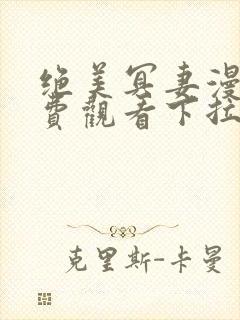 绝美冥妻漫
费观看下拉
克里斯-卡曼